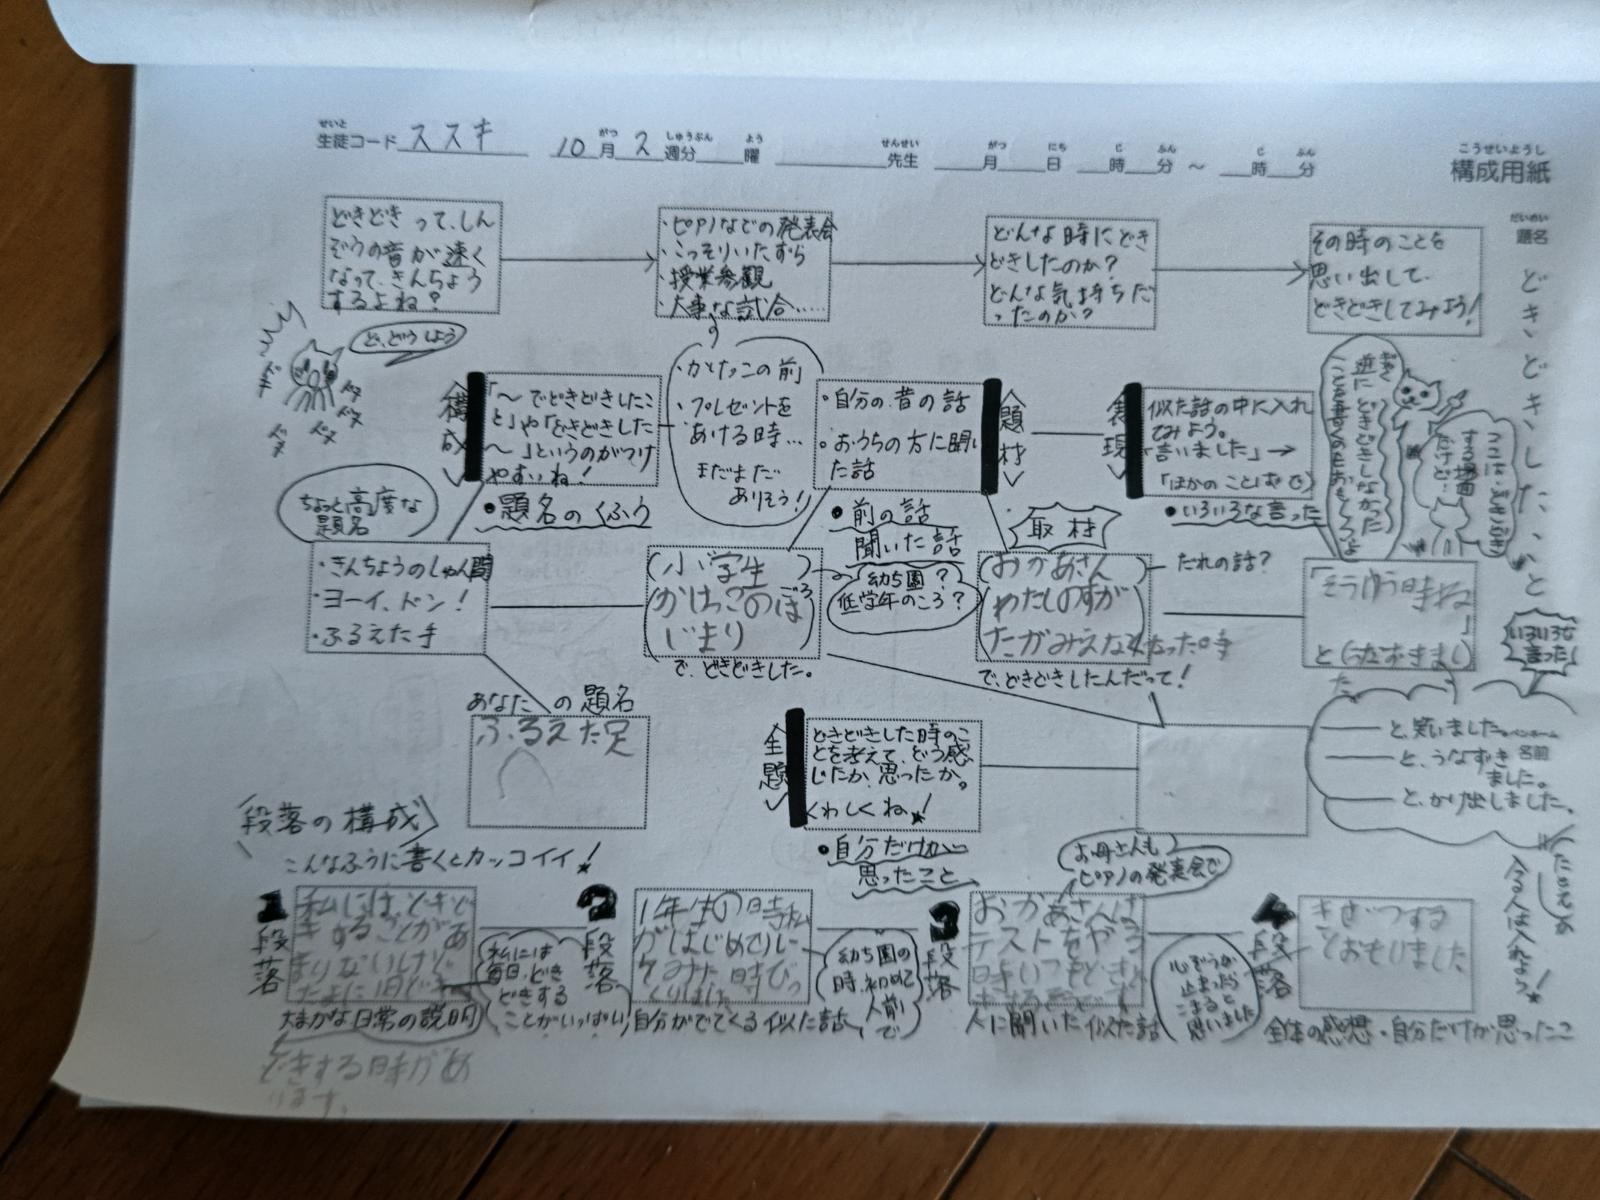 せいと
生徒コード ススキ
10月2週分 曜
がつ しゅうぶん よう
先生
せんせい
月 日 時 分 ～ 時 分
がつ にち じ ふん じ ふん
こうせいようし
構成用紙
だいめい
題名
どきどきした、こと
どきどきって、しん
ぞうの音が速く
なって、きんちょう
するよね？
・ピアノなどの発表会
・こっそりいたずら
・授業参観
・大事な試合……
どんな時にどき
どきしたのか？
どんな気持ちだ
ったのか？
その時のことを
思い出して、
どきどきしてみよう！
ど、どうしよう
ドキ
ドキ
ドキ
ドキ
ドキ
構成
「～でどきどきしたこ
と」や「どきどきした
～」というのがつけ
やすいね！
・題名のくふう
・かけっこの前
・プレゼントを
あける時…
まだまだ
ありそう！
・自分の昔の話
・おうちの方に聞い
た話
題材
・前の話
聞いた話
表現
似た話の中に入れ
てみよう。
「言いました」→
「ほかのことばで」
・いろいろな言った
ぎゃく
逆にどきどきしなかった
ことを書くのもおもしろいよ
ここは、どきどき
する場面
だけど…
ちょっと高度な
題名
・きんちょうのしゅん間
・ヨーイ、ドン！
・ふるえた手
小学生
かけっこのは
じまり
ごろ
で、どきどきした。
幼ち園？
低学年のころ？
取材
おかあさん
わたしのすが
たがみえなくなった時
だれの話？
で、どきどきしたんだって！
「そうゆう時ね
」
いろいろな
言った！
あなたの題名
ふるえた足
全題
どきどきした時のこ
とを考えて、どう感
じたか、思ったか。
くわしくね！
・自分だけが
思ったこと
―と、笑いました。
―と、うなずき
ました。
―と、かけ出しました。
ペンネーム
名前
入る人は入れよう！
段落の構成
こんなふうに書くとカッコイイ！
1段落
私にはどきど
きすることがあ
まりないけど
たまに1日
どきする時があ
ります。
大まかな日常の説明
私には
毎日、どき
どきする
ことがいっぱい
2段落
1年生の時私
がはじめて
自分がでてくる似た話
幼ち園の
時、初めて
人前で
3段落
おかあさんは
テストをやる
時いつもどき
人に聞いた似た話
お母さんも
ピアノの発表会で
心ぞうが
止まったら
こまると
思いました
4段落
きぜつする
とおもいました
全体の感想・自分だけが思ったこ